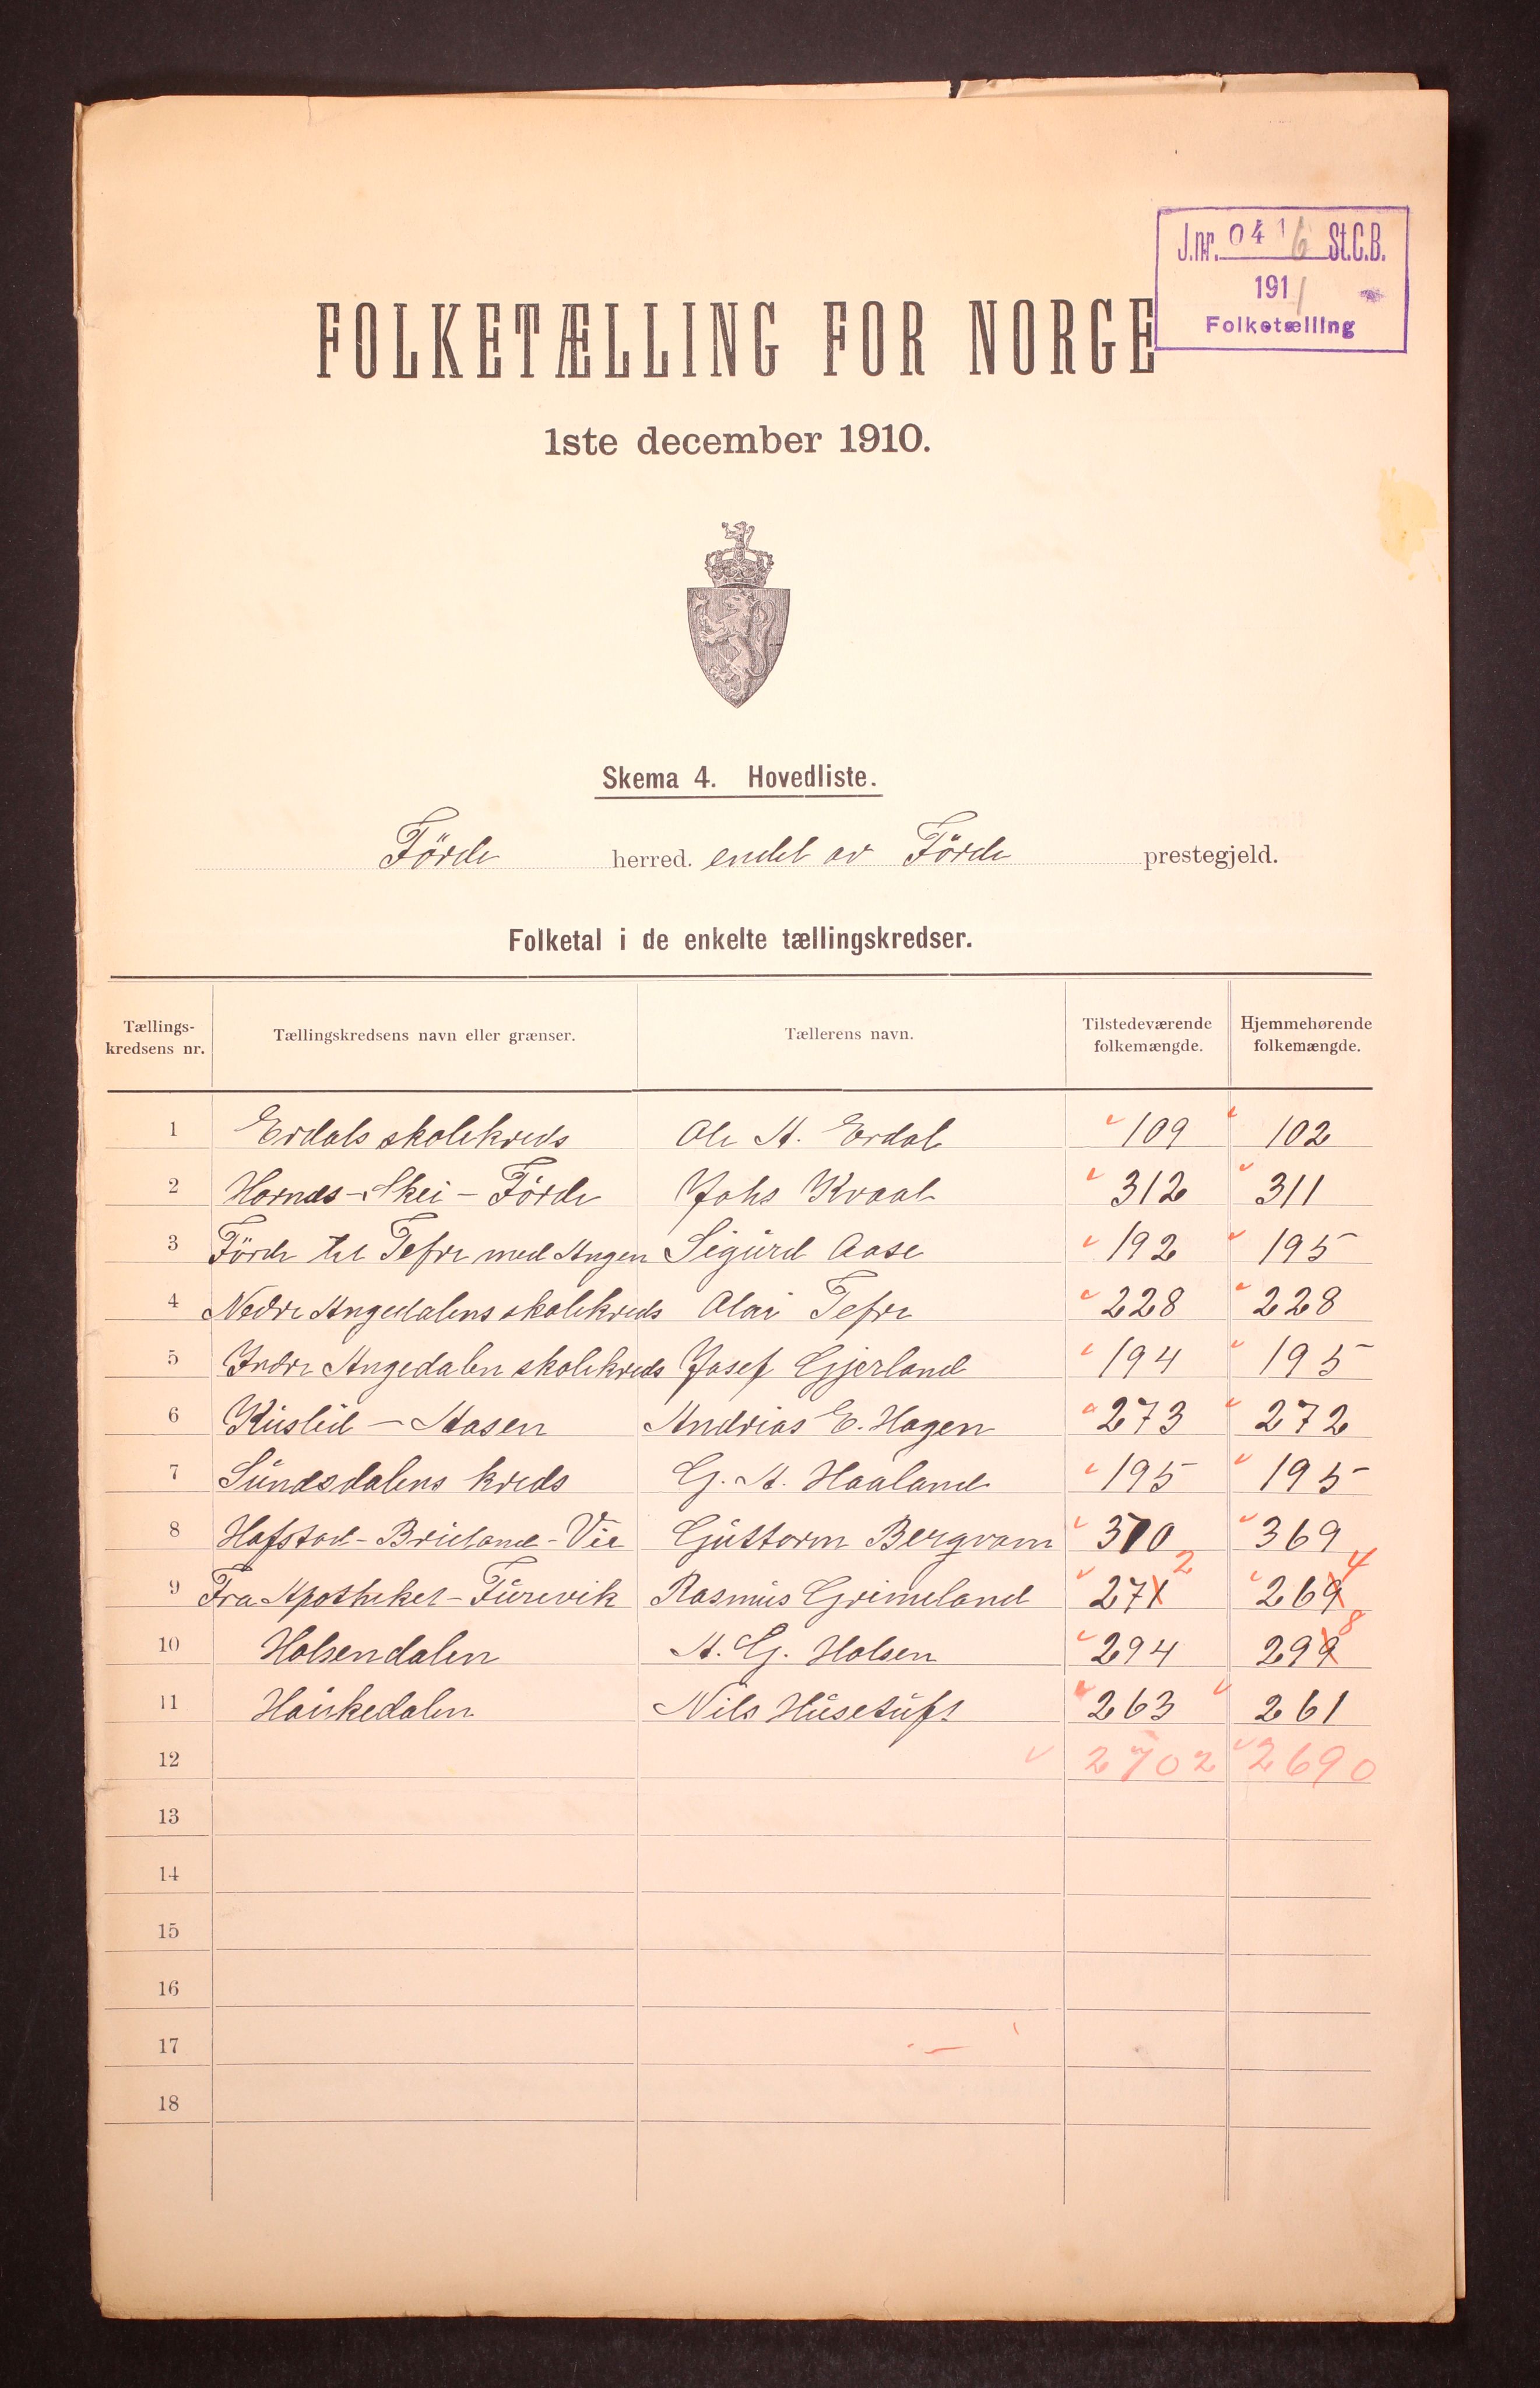 J.nr. 0416 St.C.B.
1911
Folketælling
FOLKETÆLLING FOR NORGE
1ste december 1910.
Skema 4. Hovedliste.
Förde herred. endel av Förde prestegjeld.
Folketal i de enkelte tællingskredser.
Tællings-kredsens nr. Tællingskredsens navn eller grænser. Tællerens navn. Tilstedeværende folkemængde. Hjemmehørende folkemængde.
1 Erdals skolekreds Ole A. Erdal 109 102
2 Hornes - Skei - Förde Johs Kvaal 312 311
3 Förde til Tefre med Angen Sigurd Aase 192 195
4 Nedre Angedalens skolekreds Olai Tefre 228 228
5 Indre Angedalen skolekreds Josef Gjerland 194 195
6 Kuslid - Aasen Andrias E. Hagen 273 272
7 Sundsdalens kreds G. A. Haaland 195 195
8 Hafstad - Brieland - Vie Guttorm Bergvam 370 369
9 Fra Apotheket - Furevik Rasmus Grimeland 271 2 269 4
10 Holsendalen A. G. Holsen 294 299 8
11 Haukedalen Nils Husetuft 263 261
12 2702 2690
13
14
15
16
17
18